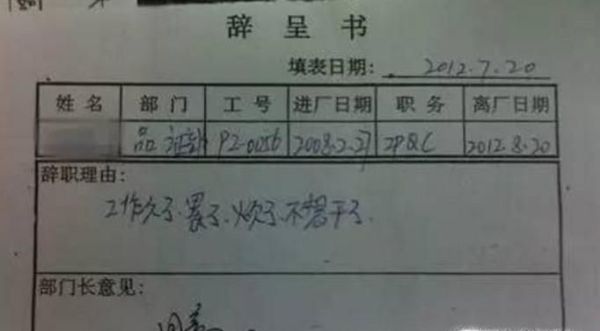 辞呈书
填表日期: 2012.7.20
姓名 部门 工号 进厂日期 职务 离厂日期
品证部 PZ-0056 2008.2.27 IPQC 2012.8.20
辞职理由:
工作久了、累了、火欠了、不想干了.
部门长意见:
同意